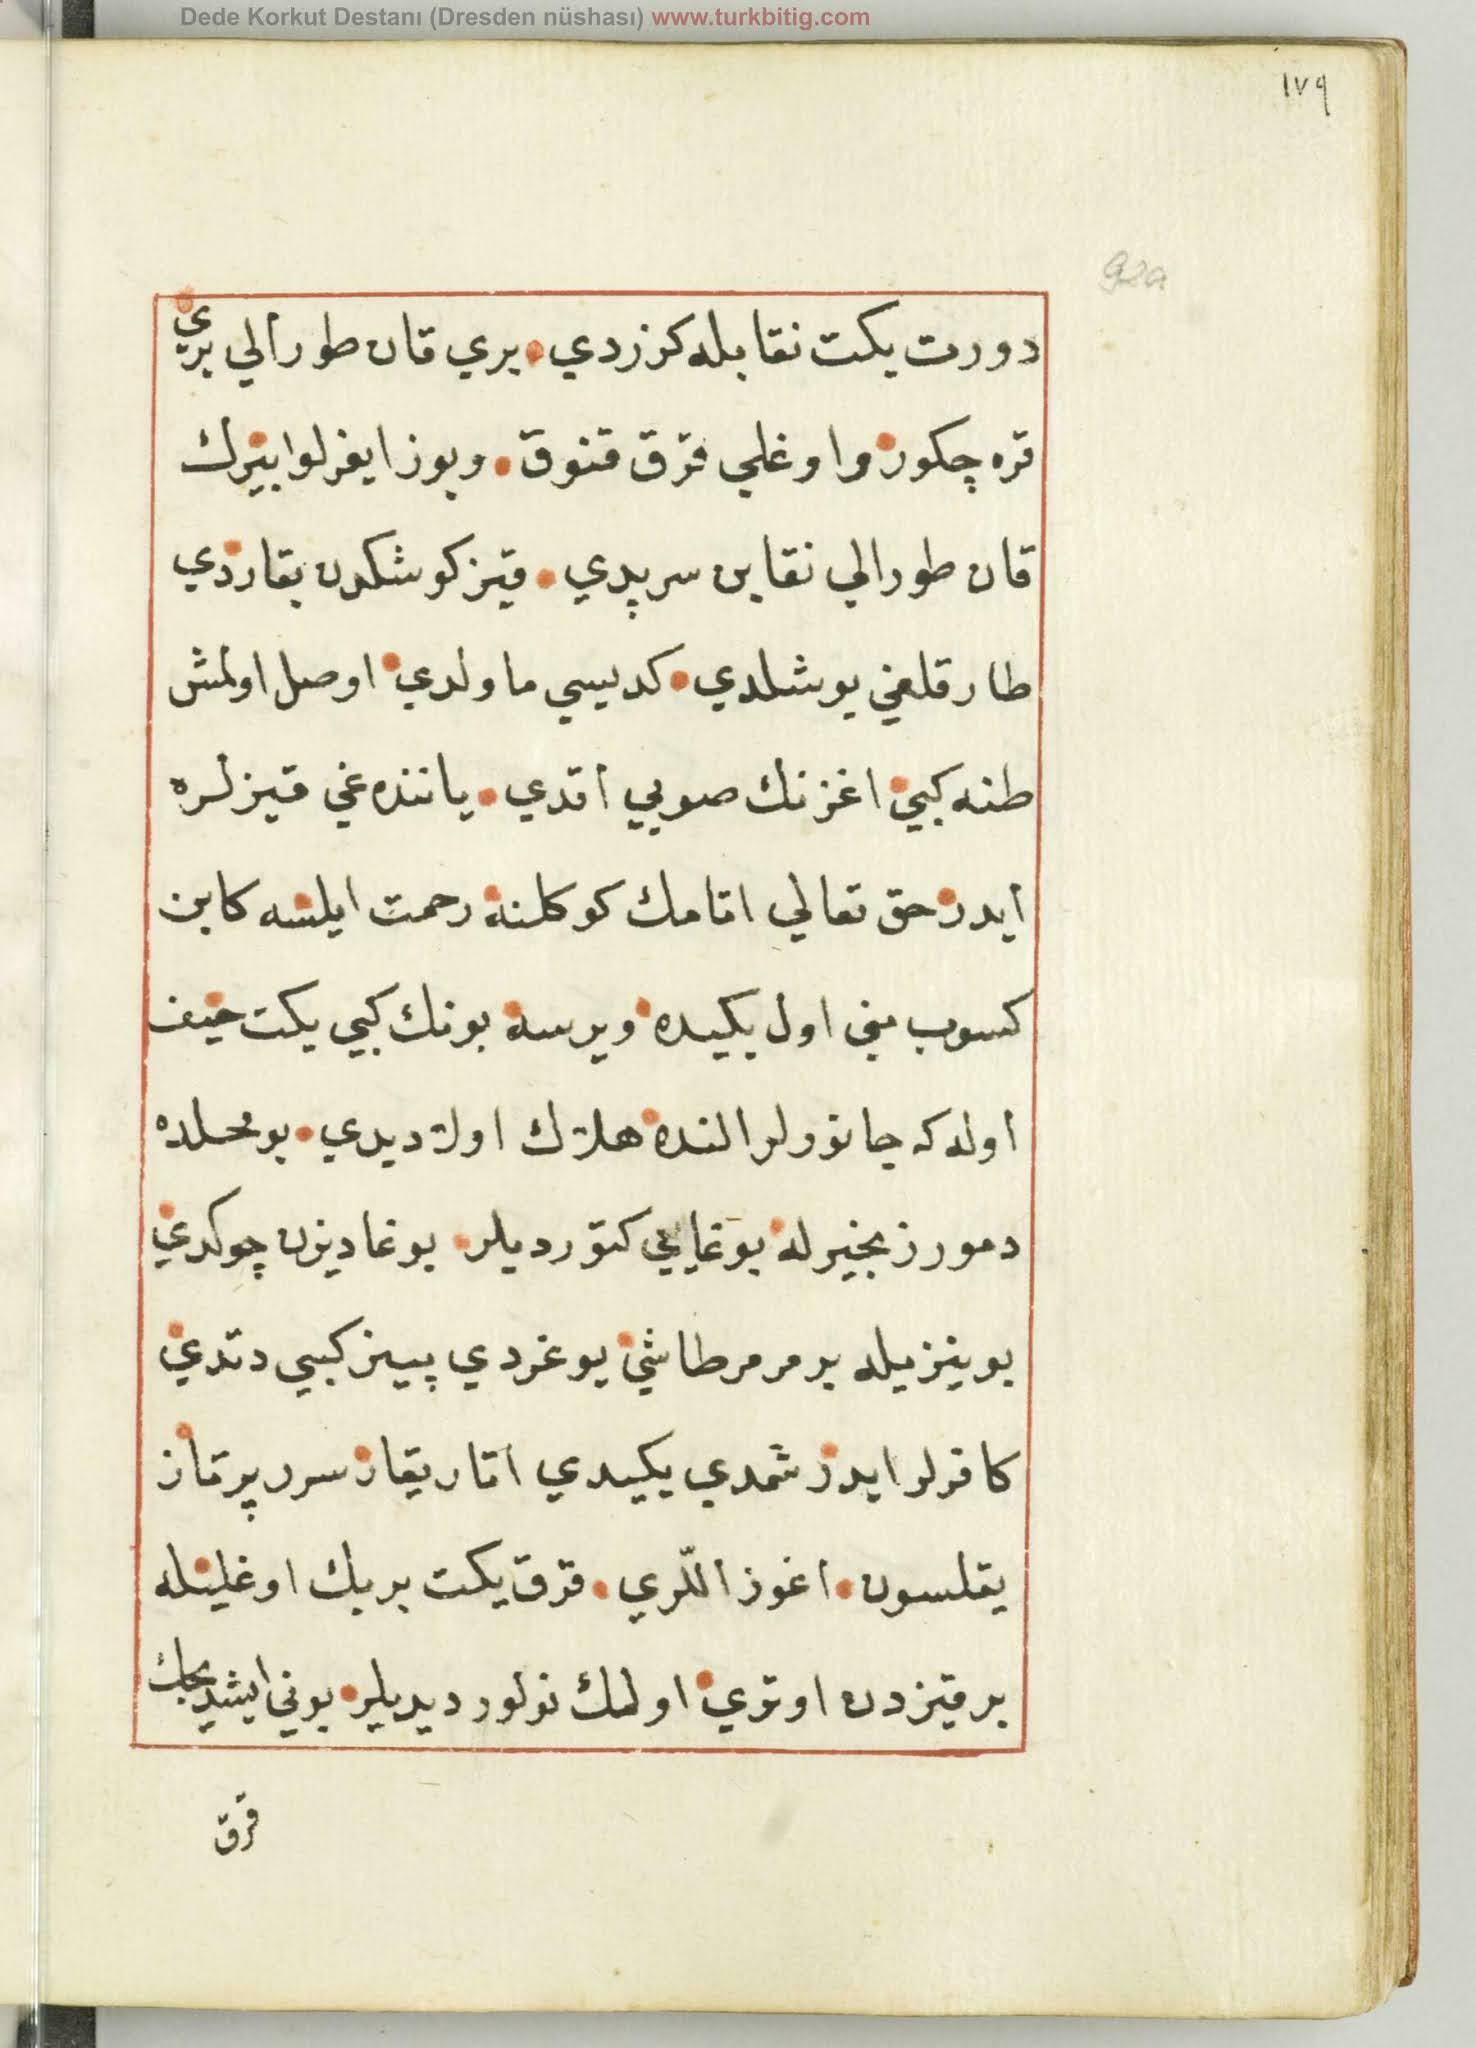 Dede Korkut Destanı (Dresden nüshası) www.turkbitig.com
١٧٩
92a
دورت يكت نقابله كزردي بري قان طورالي بري
قره چكور و اوغلي قرق قنوق وبوز ايغرلو ابيرك
قان طورالي نقابن سرپدي قيز كوشكدن بقاردي
طارقلغي يوشلدي كديسي ماولدي اوصل اولمش
طنه كبي اغزنك صويي اقدي ياننده غي قيزلره
ايدر حق تعالي اتامك كوكلنه رحمت ايلسه كابن
كسوب بني اول يكيده ويرسه بونك كبي يكت حيف
اوله كه جانورلر النده هلاك اولا ديدي بو محلده
دمور زنجيرله بوغايي كتورديلر بوغا ديزن چوكدي
بوينزيله بر مرمر طاشي يوغردي پينر كبي دتدي
كافرلر ايدر شمدي يكيدي اتار يقار سرر پرتار
يقلسون اغوز اللري قرق يكت بر بك اوغليله
بر قيزدن اوتوري اولمك نولور ديديلر بوني ايشيديجك
قرق